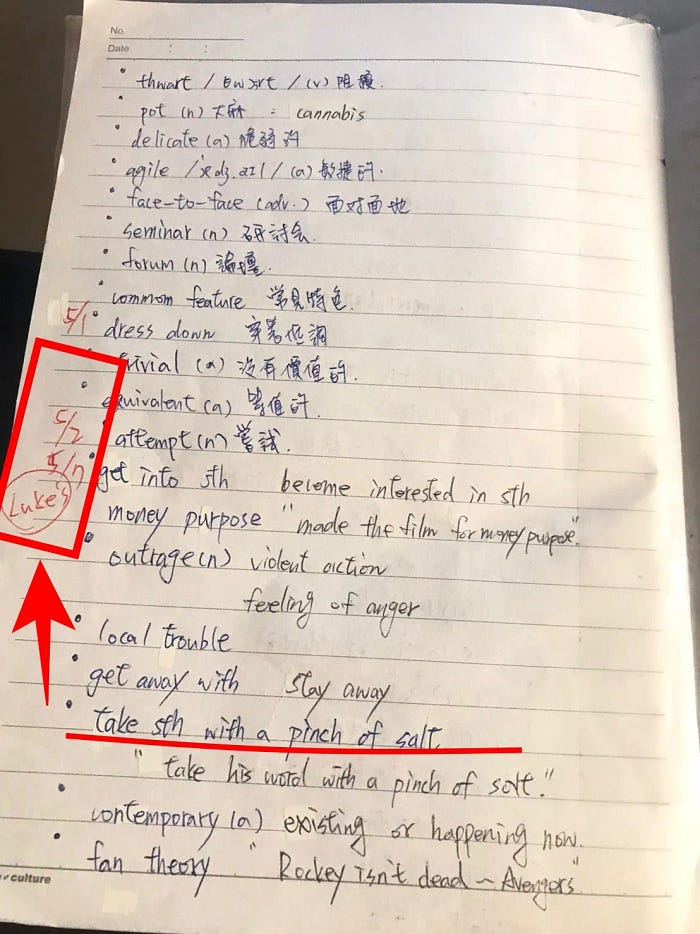 No.
Date : :
thwart / θwɔrt / (v) 阻擾.
pot (n) 大麻 : cannabis
delicate (a) 脆弱的
agile /ˈædʒ.aɪl / (a) 敏捷的.
face-to-face (adv.) 面对面地
seminar (n) 研討会.
forum (n) 論壇.
common feature 常見特色.
5/1 dress down 穿著低調
trivial (a) 沒有價值的.
equivalent (a) 等值的.
5/2 attempt (n) 嘗試.
5/7 get into sth become interested in sth
Luke's money purpose "made the film for money purpose."
outrage (n) violent action
feeling of anger
local trouble
get away with stay away
take sth with a pinch of salt.
"take his word with a pinch of salt."
contemporary (a) existing or happening now.
fan theory "Rockey isn't dead – Avengors"
culture